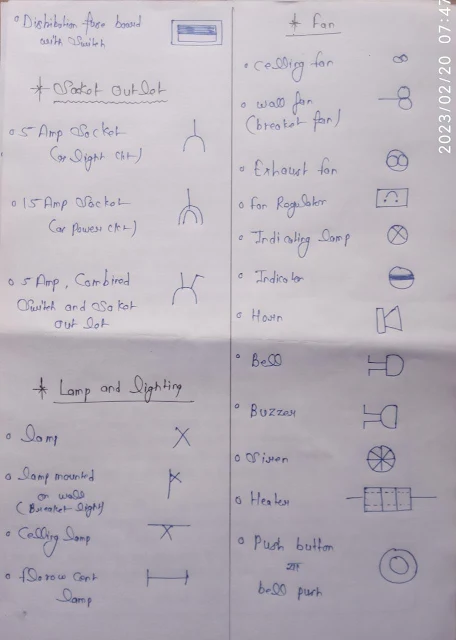 Distribution fuse board
with Switch
* Socket Outlet
5 Amp Socket
(or light ckt)
15 Amp Socket
(or Power ckt)
5 Amp, Combined
Switch and Socket
Out let
* Lamp and lighting
lamp
lamp mounted
on wall
(Breaket light)
Celling lamp
florow cent
lamp
* Fan
celling fan
wall fan
(breaket fan)
Exhaust fan
Fan Rogulator
Indicating lamp
Indicator
Horn
Bell
Buzzer
Siren
Heater
Push button
या
bell push
2023/02/20 07:47